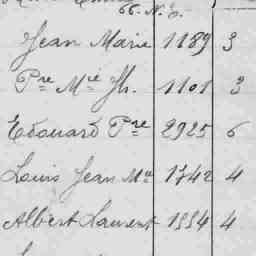 Jean Marie 1189 3
Pre Mie Jh. 1101 3
Edouard Pre 2925 6
Louis Jean Mie 1742 4
Albert Laurent 1554 4